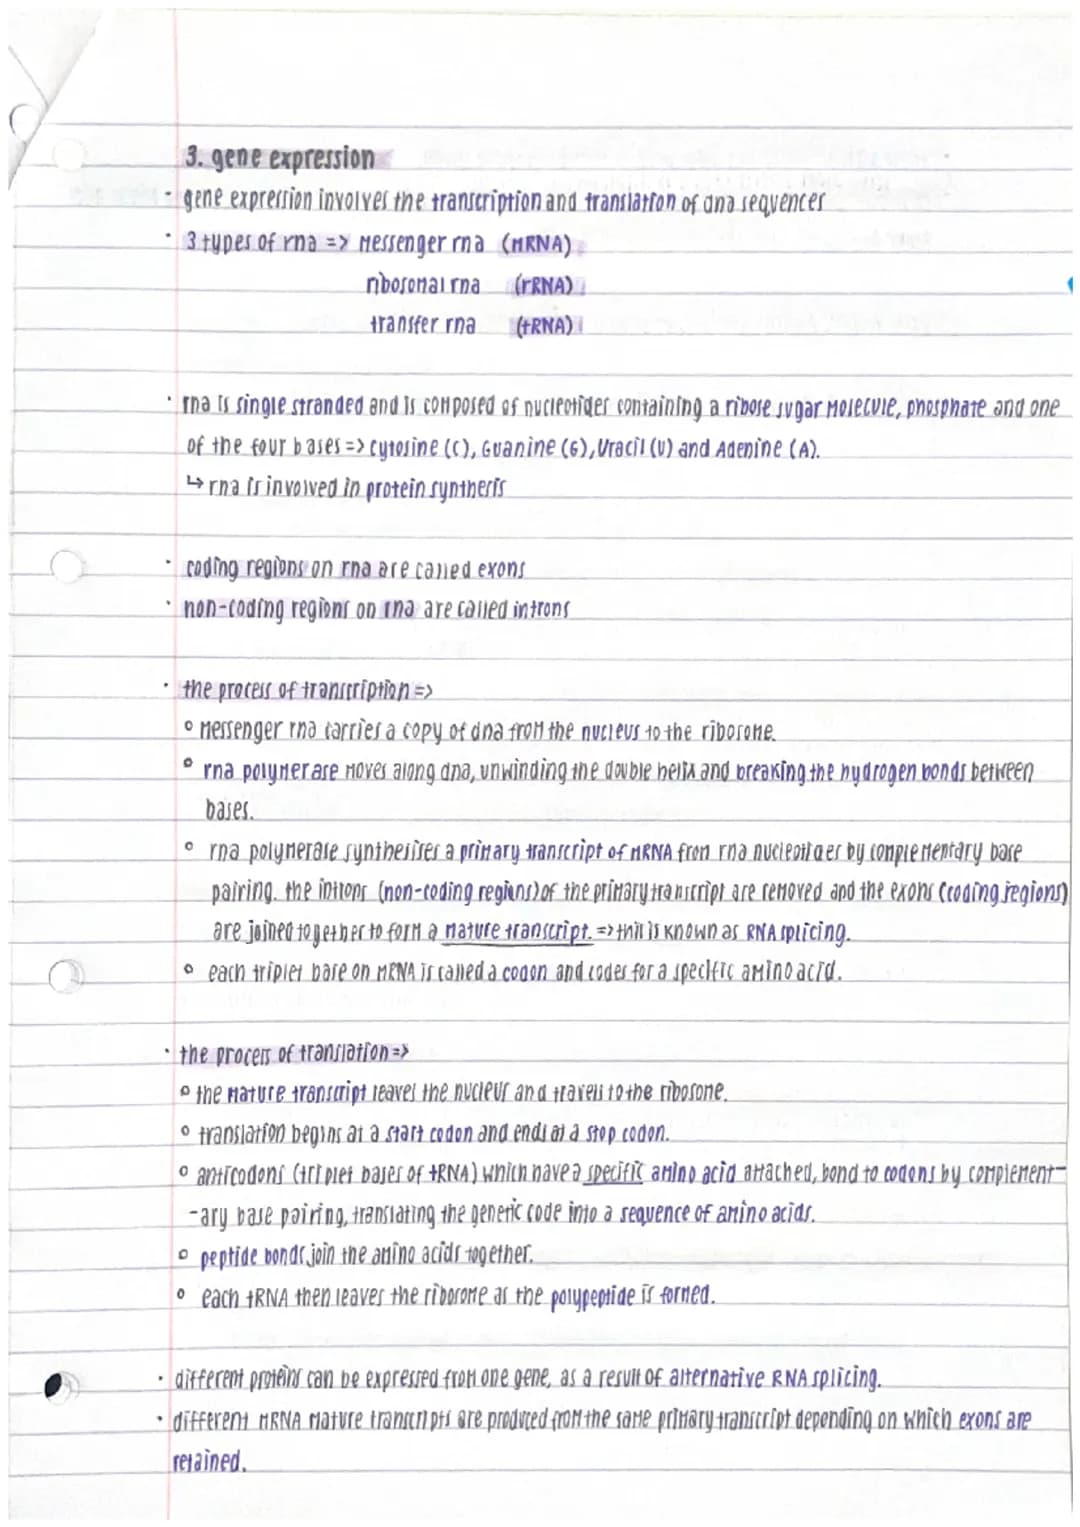 3. gene expression
· gene expression involves the transcription and translation of dna sequences
· 3 types of rna => messenger rna (mRNA)
ribosomal rna (rRNA)
transfer rna (tRNA)
· rna is single stranded and is composed of nucleotides containing a ribose sugar molecule, phosphate and one
of the four bases => cytosine (C), Guanine (G), Uracil (U) and Adenine (A).
↳ rna is involved in protein synthesis
· coding regions on rna are called exons
· non-coding regions on rna are called introns
· the process of transcription =>
° messenger rna carries a copy of dna from the nucleus to the ribosome.
° rna polymerase moves along dna, unwinding the double helix and breaking the hydrogen bonds between
bases.
° rna polymerase synthesises a primary transcript of mRNA from rna nucleotides by complementary base
pairing. the introns (non-coding regions) of the primary transcript are removed and the exons (coding regions)
are joined together to form a mature transcript. => this is known as RNA splicing.
° each triplet base on mRNA is called a codon and codes for a specific amino acid.
· the process of translation =>
° the mature transcript leaves the nucleus and travels to the ribosome.
° translation begins at a start codon and ends at a stop codon.
° anticodons (triplet bases of tRNA) which have a specific amino acid attached, bond to codons by complement-
-ary base pairing, translating the genetic code into a sequence of amino acids.
° peptide bonds join the amino acids together.
° each tRNA then leaves the ribosome as the polypeptide is formed.
· different proteins can be expressed from one gene, as a result of alternative RNA splicing.
· different mRNA mature transcripts are produced from the same primary transcript depending on which exons are
retained.